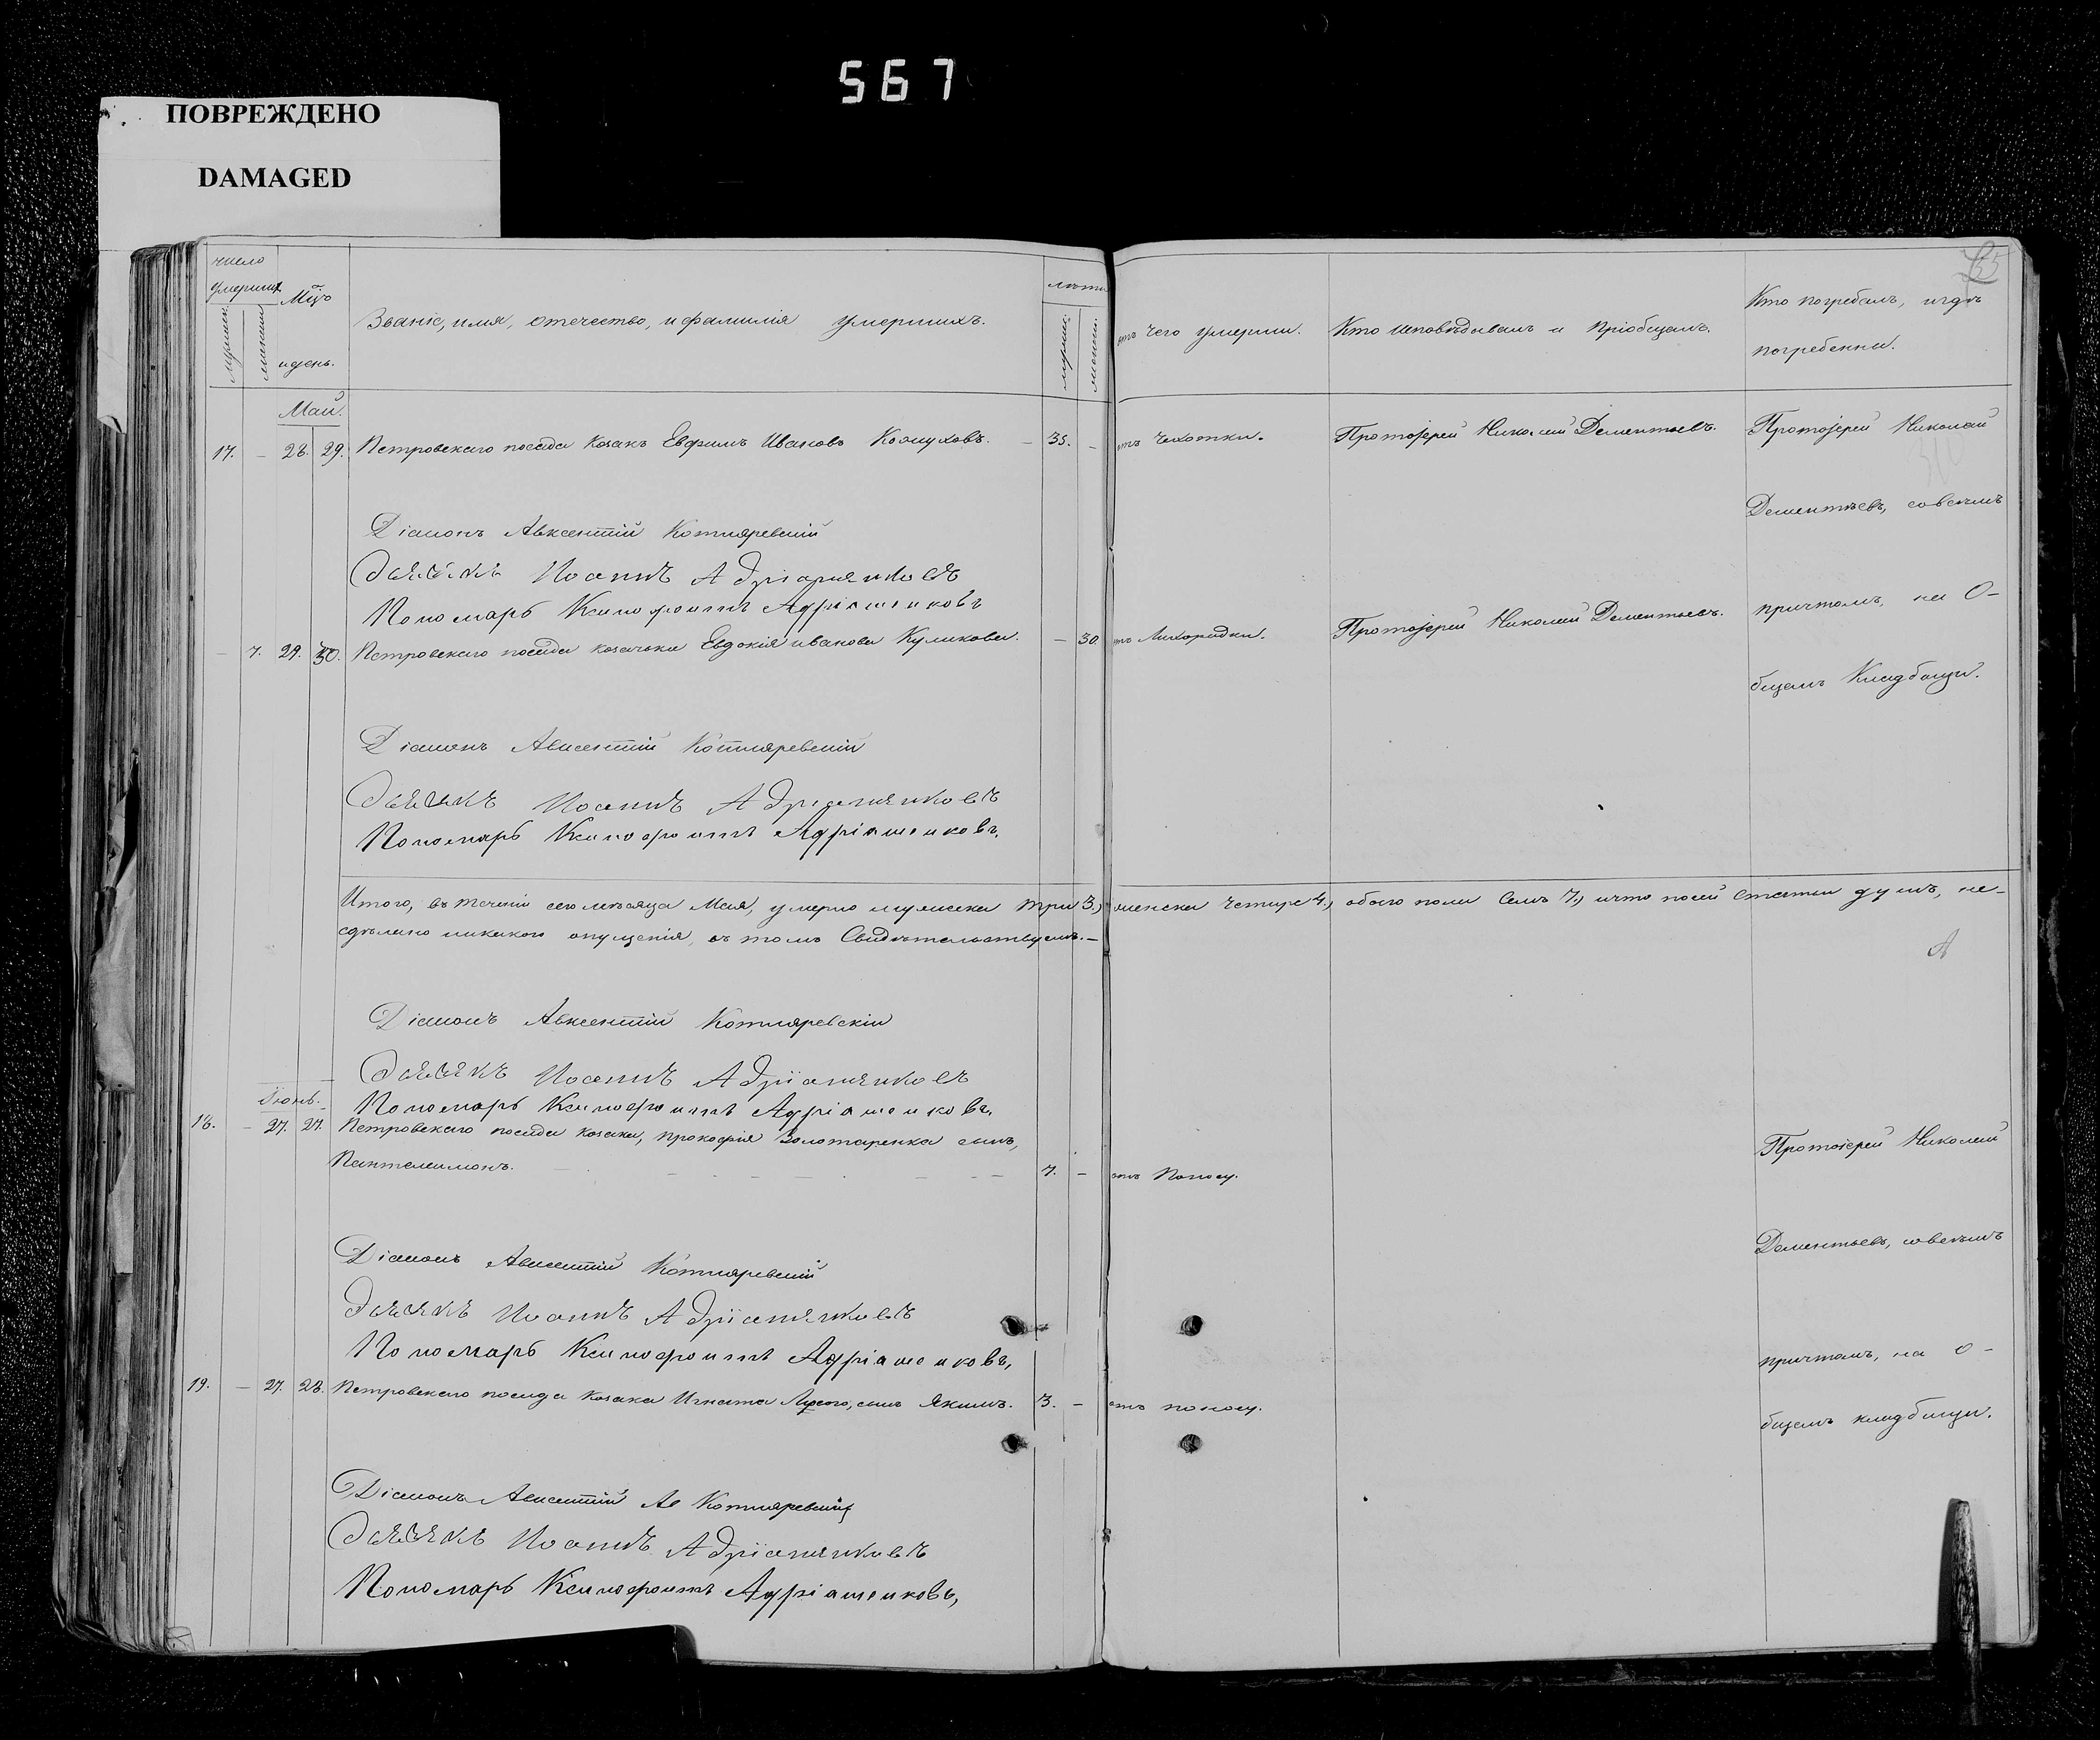 567
ПОВРЕЖДЕНО
DAMAGED
число умершихъ
мужеск.
женски
Мцъ и день.
Званіе, имя, отечество, и фамилія умершихъ.
лѣта
мужес.
женск.
отъ чего умерли.
Кто исповѣдывалъ и пріобщалъ.
Кто погребалъ, и гдѣ
погребенны.
Май.
17. – 28. 29. Петровскаго посада козакъ Евфимъ Ивановъ – 35. – отъ чехотки. Протоіерей Николай Дементьевъ. Протоіерей Николай
Дементьевъ, совсѣмъ
Діаконъ Авксентій Котляревскій
Дьячокъ Иоаннъ Адріяненковъ
Пономарь Ксенофонтъ Адріяшенковъ
причтомъ, на О-
– 7. 29. 30. Петровскаго посада козачка Евдокія иванова Куликова. – 30. отъ Лихорадки. Протоіерей Николай Дементьевъ.
бщемъ Кладбищи.
Діаконъ Авксентій Котляревскій
Дьячокъ Иоаннъ Адріяненковъ
Пономарь Ксенофонтъ Адріяшенковъ.
Итого, въ теченіи сего мѣсяца Мая, умерло мужеска три 3,) женска четыре 4,) обоего пола Семь 7,) ичто посей Статьи душъ, не-
сдѣлано никакого опущенія, въ томъ Свидѣтельствуемъ.–
Діаконъ Авксентій Котляревскій
Дьячокъ Иоаннъ Адріяненковъ
Пономарь Ксенофонтъ Адріяшенковъ.
Іюнь.
18. – 27. 27. Петровскаго посада козака, прокофія Золотаренка сынъ,
Пантелеимонъ. 7. – отъ Поносу.
Протоіерей Николай
Дементьевъ, совсѣмъ
Діаконъ Авксентій Котляревскій
Дьячокъ Иоаннъ Адріяненковъ
Пономарь Ксенофонтъ Адріяшенковъ,
причтомъ, на о-
19. – 27. 28. Петровскаго посада козака Игната сынъ Якимъ. 3. – отъ поносу.
бщемъ кладбищи.
Діаконъ Авксентій Котляревскій
Дьячокъ Иоаннъ Адріяненковъ
Пономарь Ксенофонтъ Адріяшенковъ,